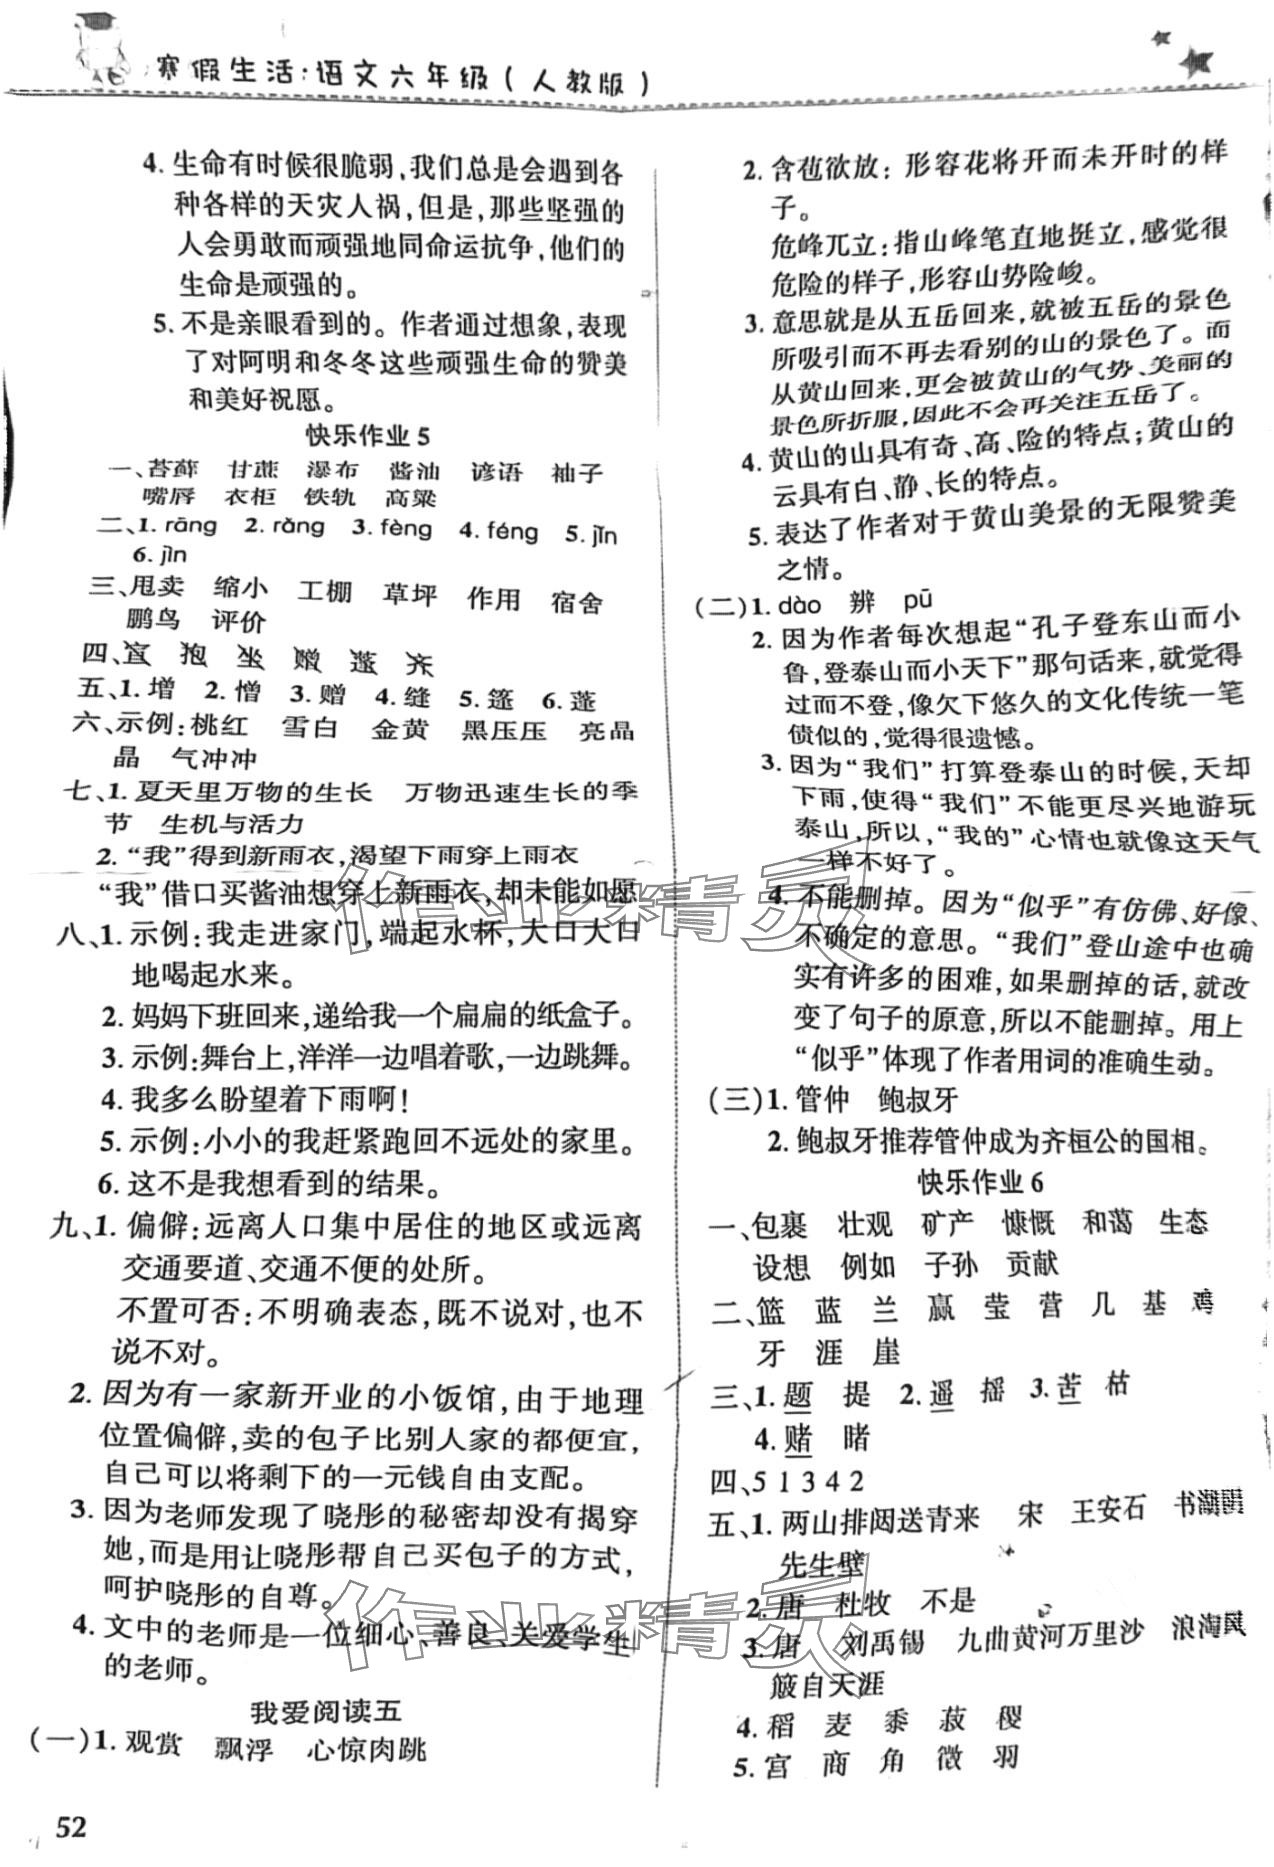 寒假生活:语文六年级(人教版)
4. 生命有时候很脆弱,我们总是会遇到各
种各样的天灾人祸,但是,那些坚强的
人会勇敢而顽强地同命运抗争,他们的
生命是顽强的。
5. 不是亲眼看到的。作者通过想象,表现
了对阿明和冬冬这些顽强生命的赞美
和美好祝愿。
快乐作业5
一、苔藓 甘蔗 瀑布 酱油 谚语 袖子
嘴唇 衣柜 铁轨 高粱
二、1. rāng 2. rǎng 3. fèng 4. féng 5. jǐn
6. jìn
三、甩卖 缩小 工棚 草坪 作用 宿舍
鹏鸟 评价
四、宜 抱 坐 赠 蓬 齐
五、1. 增 2. 憎 3. 赠 4. 缝 5. 篷 6. 蓬
六、示例:桃红 雪白 金黄 黑压压 亮晶
晶 气冲冲
七、1. 夏天里万物的生长 万物迅速生长的季
节 生机与活力
2. “我”得到新雨衣,渴望下雨穿上雨衣
“我”借口买酱油想穿上新雨衣,却未能如愿
八、1. 示例:我走进家门,端起水杯,大口大口
地喝起水来。
2. 妈妈下班回来,递给我一个扁扁的纸盒子。
3. 示例:舞台上,洋洋一边唱着歌,一边跳舞。
4. 我多么盼望着下雨啊!
5. 示例:小小的我赶紧跑回不远处的家里。
6. 这不是我想看到的结果。
九、1. 偏僻:远离人口集中居住的地区或远离
交通要道、交通不便的处所。
不置可否:不明确表态,既不说对,也不
说不对。
2. 因为有一家新开业的小饭馆,由于地理
位置偏僻,卖的包子比别人家的都便宜,
自己可以将剩下的一元钱自由支配。
3. 因为老师发现了晓彤的秘密却没有揭穿
她,而是用让晓彤帮自己买包子的方式,
呵护晓彤的自尊。
4. 文中的老师是一位细心、善良、关爱学生
的老师。
我爱阅读五
(一)1. 观赏 飘浮 心惊肉跳
52
2. 含苞欲放:形容花将开而未开时的样
子。
危峰兀立:指山峰笔直地挺立,感觉很
危险的样子,形容山势险峻。
3. 意思就是从五岳回来,就被五岳的景色
所吸引而不再去看别的山的景色了。而
从黄山回来,更会被黄山的气势、美丽的
景色所折服,因此不会再关注五岳了。
4. 黄山的山具有奇、高、险的特点;黄山的
云具有白、静、长的特点。
5. 表达了作者对于黄山美景的无限赞美
之情。
(二)1. dào 辨 pū
2. 因为作者每次想起“孔子登东山而小
鲁,登泰山而小天下”那句话来,就觉得
过而不登,像欠下悠久的文化传统一笔
债似的,觉得很遗憾。
3. 因为“我们”打算登泰山的时候,天却
下雨,使得“我们”不能更尽兴地游玩
泰山,所以,“我的”心情也就像这天气
一样不好了。
4. 不能删掉。因为“似乎”有仿佛、好像、
不确定的意思。“我们”登山途中也确
实有许多的困难,如果删掉的话,就改
变了句子的原意,所以不能删掉。用上
“似乎”体现了作者用词的准确生动。
(三)1. 管仲 鲍叔牙
2. 鲍叔牙推荐管仲成为齐桓公的国相。
快乐作业6
一、包裹 壮观 矿产 慷慨 和蔼 生态
设想 例如 子孙 贡献
二、篮 蓝 兰 赢 莹 营 几 基 鸡
牙 涯 崖
三、1. 题 提 2. 遥 摇 3. 苦 枯
4. 赌 睹
四、5 1 3 4 2
五、1. 两山排闼送青来 宋 王安石 书湖阴
先生壁
2. 唐 杜牧 不是
3. 唐 刘禹锡 九曲黄河万里沙 浪淘风
簸自天涯
4. 稻 麦 黍 菽 稷
5. 宫 商 角 徵 羽
作业精灵
作业精灵